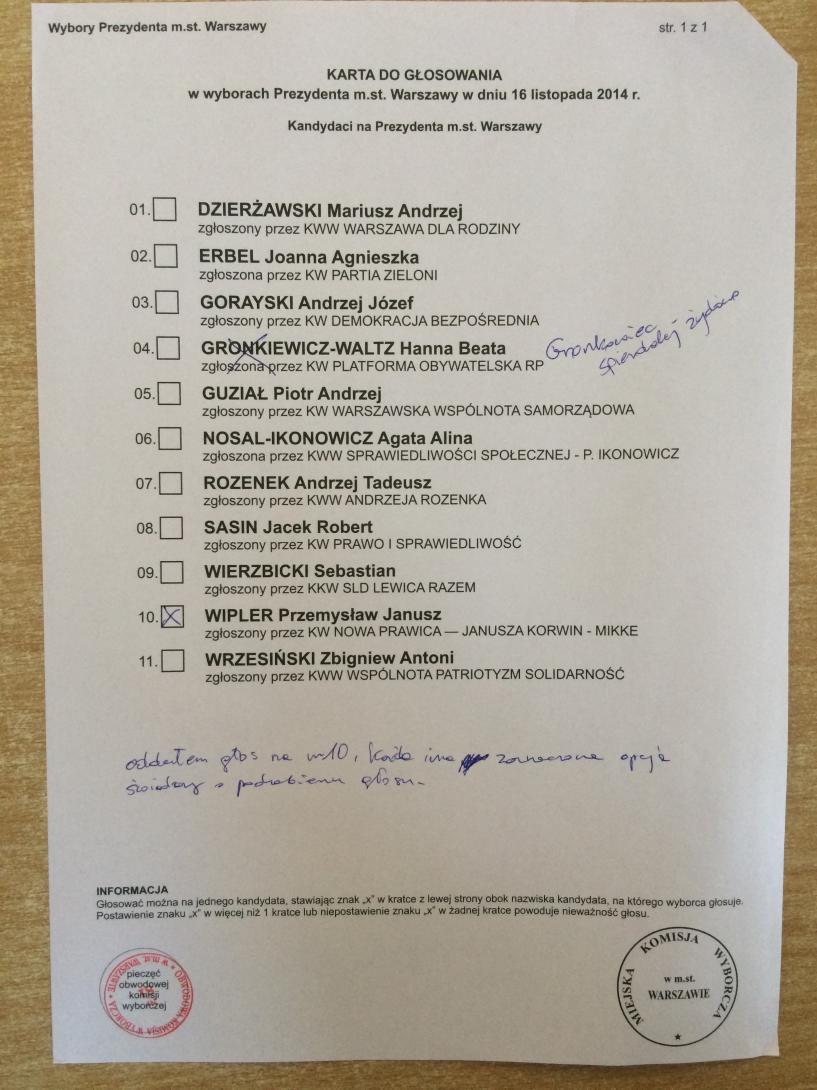 Wybory Prezydenta m.st. Warszawy
str. 1 z 1
KARTA DO GŁOSOWANIA
w wyborach Prezydenta m.st. Warszawy w dniu 16 listopada 2014 r.
Kandydaci na Prezydenta m.st. Warszawy
01. DZIERŻAWSKI Mariusz Andrzej
zgłoszony przez KWW WARSZAWA DLA RODZINY
02. ERBEL Joanna Agnieszka
zgłoszona przez KW PARTIA ZIELONI
03. GORAYSKI Andrzej Józef
zgłoszony przez KW DEMOKRACJA BEZPOŚREDNIA
04. GRONKIEWICZ-WALTZ Hanna Beata
zgłoszona przez KW PLATFORMA OBYWATELSKA RP
Gronkowiec
spierdalaj żydowo
05. GUZIAŁ Piotr Andrzej
zgłoszony przez KW WARSZAWSKA WSPÓLNOTA SAMORZĄDOWA
06. NOSAL-IKONOWICZ Agata Alina
zgłoszona przez KWW SPRAWIEDLIWOŚCI SPOŁECZNEJ - P. IKONOWICZ
07. ROZENEK Andrzej Tadeusz
zgłoszony przez KWW ANDRZEJA ROZENKA
08. SASIN Jacek Robert
zgłoszony przez KW PRAWO I SPRAWIEDLIWOŚĆ
09. WIERZBICKI Sebastian
zgłoszony przez KKW SLD LEWICA RAZEM
10. WIPLER Przemysław Janusz
zgłoszony przez KW NOWA PRAWICA — JANUSZA KORWIN - MIKKE
11. WRZESIŃSKI Zbigniew Antoni
zgłoszony przez KWW WSPÓLNOTA PATRIOTYZM SOLIDARNOŚĆ
oddałem głos na nr 10, każda inna zaznaczona opcja
świadczy o podrobieniu głosu.
INFORMACJA
Głosować można na jednego kandydata, stawiając znak „x” w kratce z lewej strony obok nazwiska kandydata, na którego wyborca głosuje.
Postawienie znaku „x” w więcej niż 1 kratce lub niepostawienie znaku „x” w żadnej kratce powoduje nieważność głosu.
pieczęć
obwodowej
komisji
wyborczej
OBWODOWA KOMISJA WYBORCZA
w m.st. WARSZAWIE
MIEJSKA KOMISJA WYBORCZA
w m.st.
WARSZAWIE